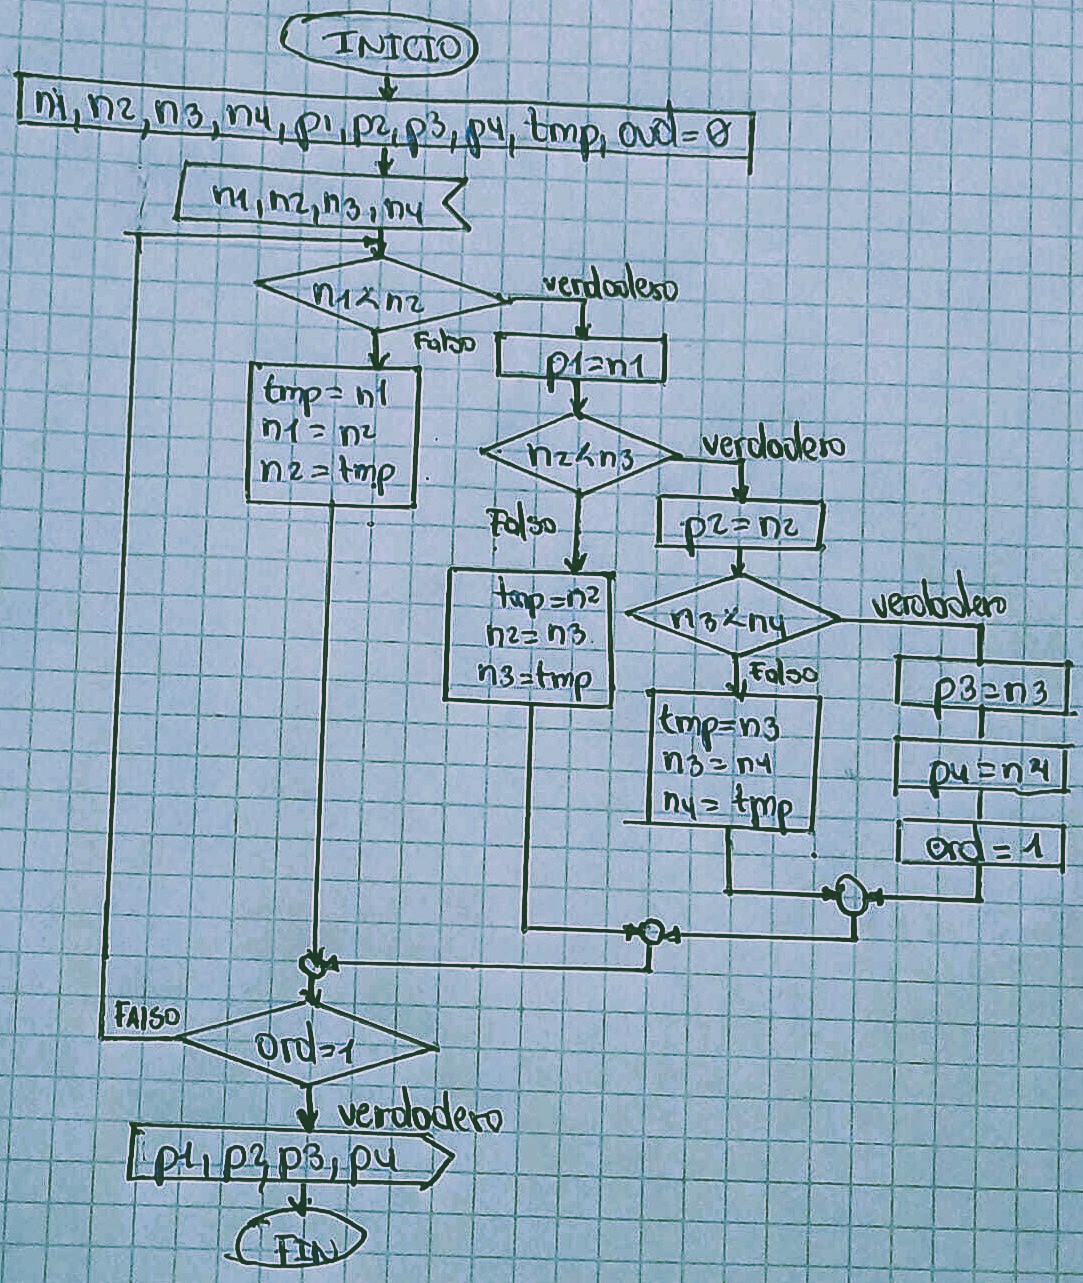 INICIO
n1, n2, n3, n4, p1, p2, p3, p4, tmp, ord=0
n1, n2, n3, n4
n1<n2
verdadero
Falso
p1=n1
tmp= n1
n1 = n2
n2 = tmp
n2<n3
verdadero
Falso
p2=n2
tmp=n2
n2=n3
n3=tmp
n3<n4
verdadero
Falso
p3=n3
tmp=n3
n3=n4
n4= tmp
p4=n4
ord=1
FAlSO
Ord=1
verdadero
p1, p2, p3, p4
FIN